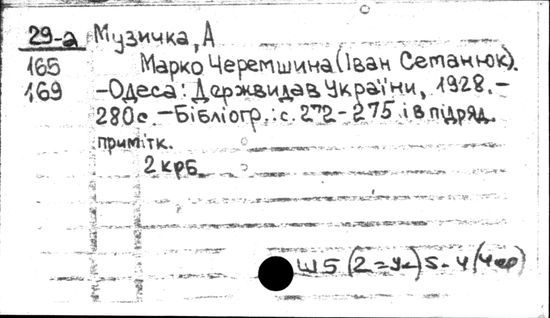 29-а Музичка, А
165 Марко Черемшина (Іван Семанюк).
169 -Одеса: Держвидав України, 1928.-
280с.-Бібліогр.: с. 272-275 і в підряд.
примітк.
2 крб.
Ш5(2=Ук)5-4(Чер)